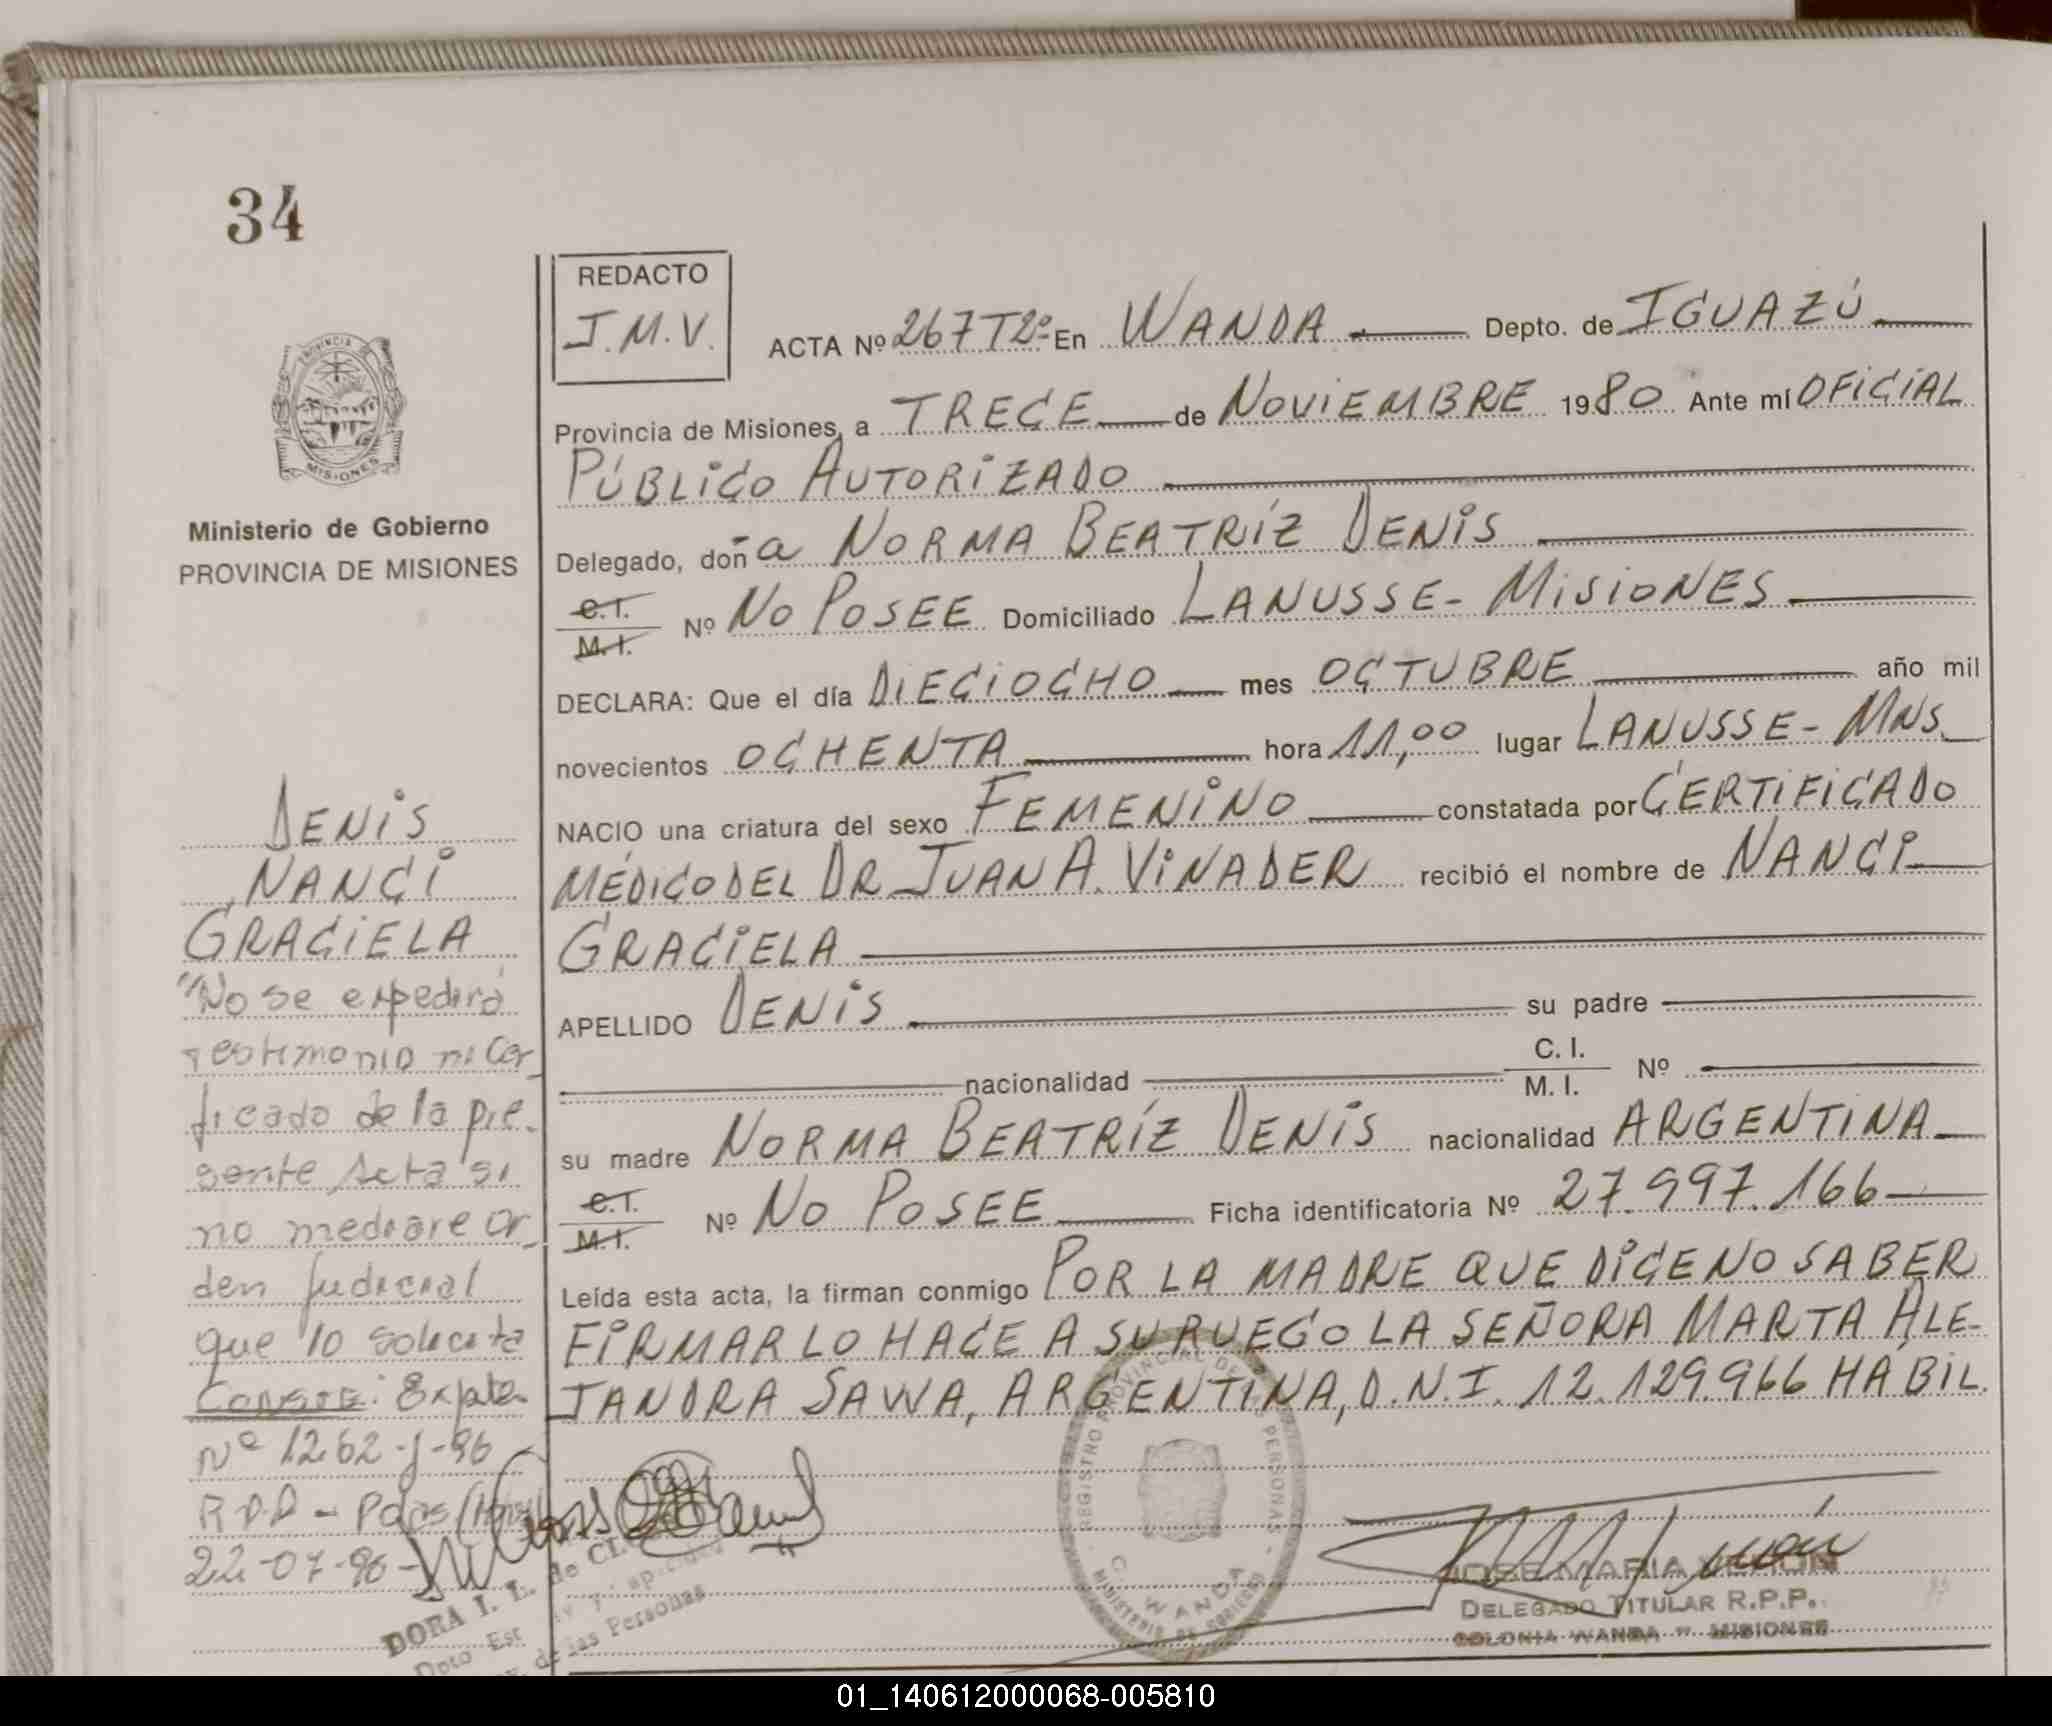 34
REDACTO
J.M.V.
ACTA Nº 267 T2º En WANDA Depto. de IGUAZÚ
Provincia de Misiones, a TRECE de NOVIEMBRE 1980 Ante mí OFICIAL
PÚBLICO AUTORIZADO
Delegado, doña NORMA BEATRÍZ DENIS
C.I.
M.I. Nº NO POSEE Domiciliado LANUSSE - MISIONES
DECLARA: Que el día DIECIOCHO mes OCTUBRE año mil
novecientos OCHENTA hora 11,00 lugar LANUSSE - MNS.
NACIO una criatura del sexo FEMENINO constatada por CERTIFICADO
MÉDICO DEL DR. JUAN A. VINADER recibió el nombre de NANCI
GRACIELA
APELLIDO DENIS su padre
nacionalidad C. I.
M. I. Nº
su madre NORMA BEATRÍZ DENIS nacionalidad ARGENTINA
C.I.
M.I. Nº NO POSEE Ficha identificatoria Nº 27.997.166
Leída esta acta, la firman conmigo POR LA MADRE QUE DICE NO SABER
FIRMAR LO HACE A SU RUEGO LA SEÑORA MARTA ALE-
JANDRA SAWA, ARGENTINA, D.N.I. 12.129.966 HÁBIL.
PROVINCIA DE
MISIONES
Ministerio de Gobierno
PROVINCIA DE MISIONES
DENIS
NANCI
GRACIELA
"No se expedirá
Testimonio ni Cer_
ficado de la pre-
sente Acta si
no mediare or_
den Judicial
que lo solicita
CONSTE: Expte.
Nº 1262-J-96
R.P.P - Pdas
22-07-96-
DORA I. L. de
Dpto Est
de las Personas
REGISTRO PROVINCIAL DE PERSONAS
C. WANDA
MINISTERIO DE GOBIERNO
JOSE MARIA VERON
DELEGADO TITULAR R.P.P.
COLONIA WANDA - MISIONES
01_140612000068-005810